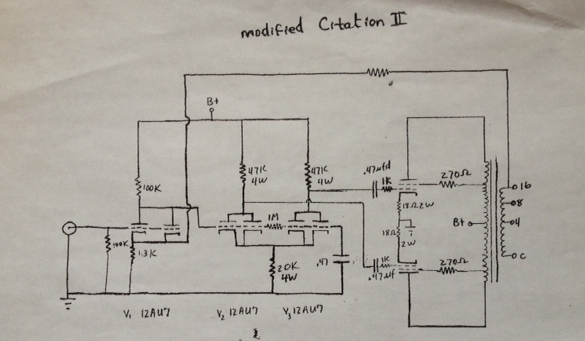 modified Citation II
B+
100K
47K
4W
47K
4W
.47mfd
1K
270Ω
18Ω 2W
16
8
4
C
B+
1M
18Ω
2W
100K
1.3K
20K
4W
.47
1K
.47uf
270Ω
V1 12AU7
V2 12AU7
V3 12AU7